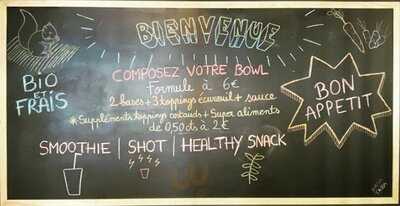 BIENVENUE
BiO
ET
FRAIS
COMPOSEZ VOTRE BOWL
Formule à 6€
2 bases + 3 toppings écureuil + sauce
* Suppléments toppings costauds + Super aliments
de 0,50cts à 2€
BON
APPETIT
SMOOTHIE | SHOT | HEALTHY SNACK